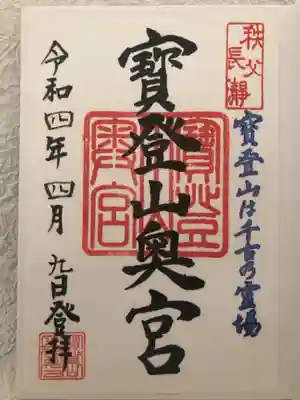 秩父
長瀞
寶登山は千古の霊場
寶登山奥宮
寶登山
奥宮
令和四年 四月 九日登拝